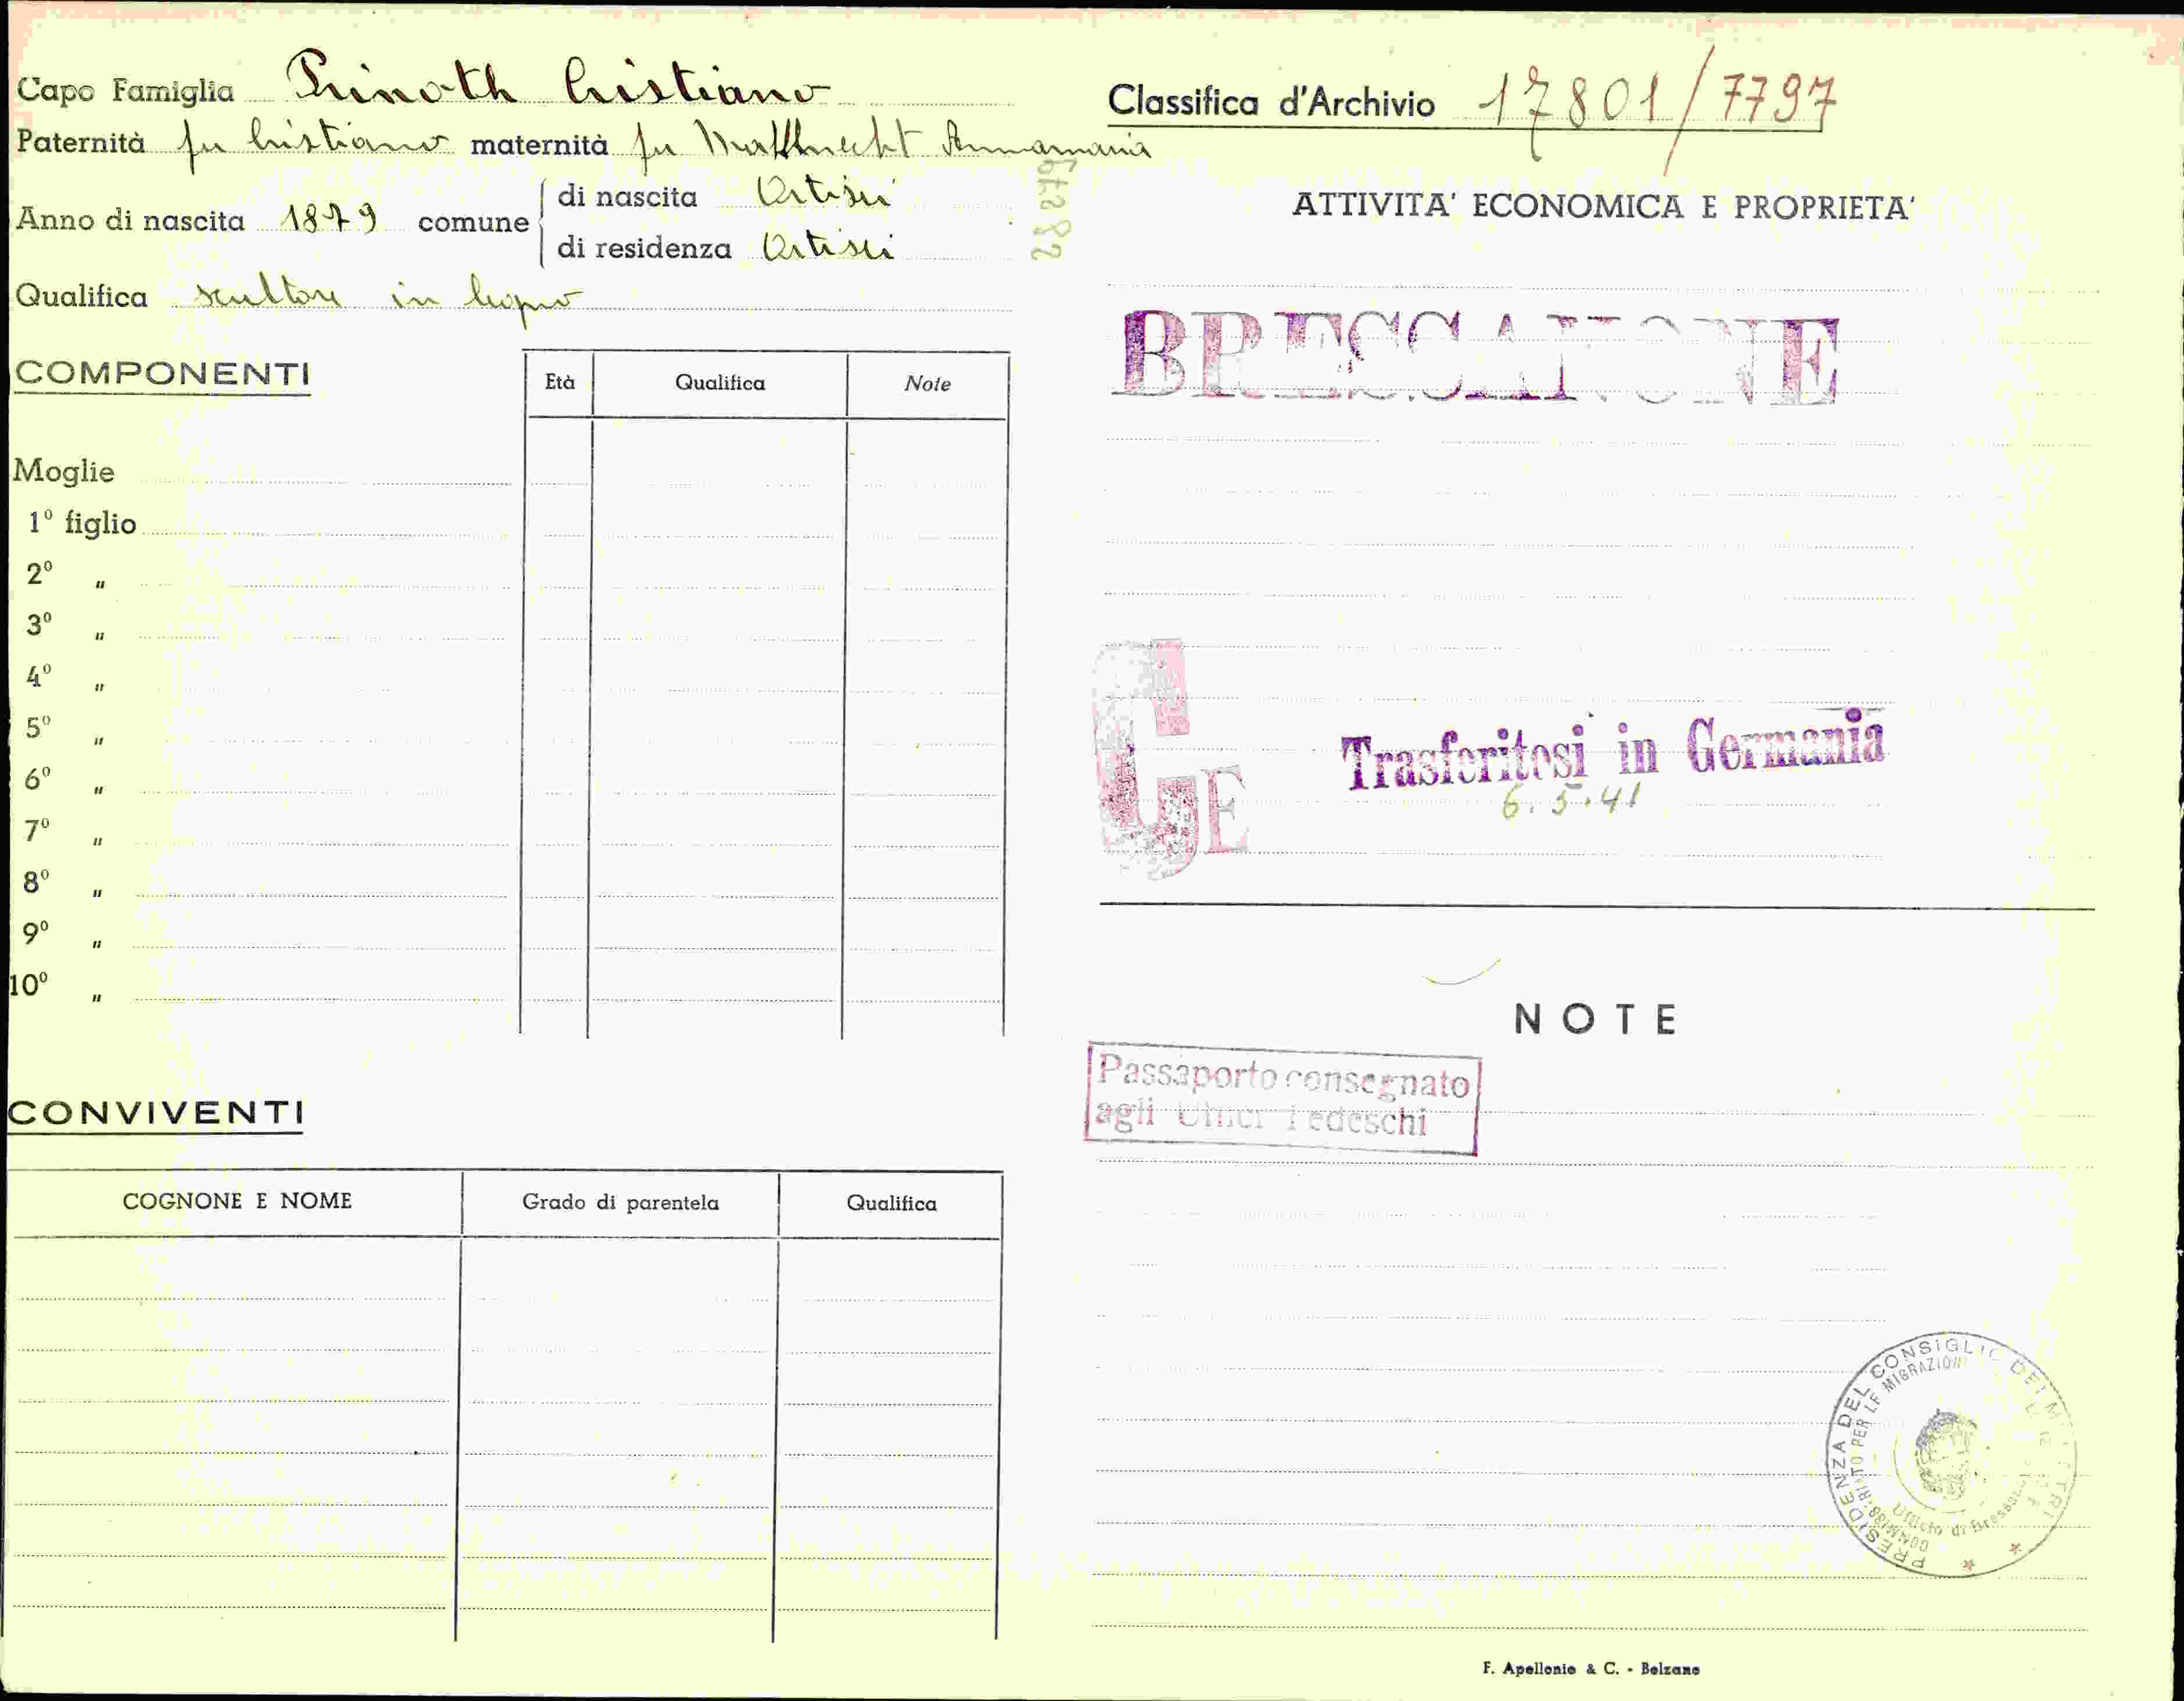 Capo Famiglia Prinoth Cristiano
Paternità fu Cristiano maternità fu Malknecht Annamaria
Anno di nascita 1879 comune
di nascita Ortisei
di residenza Ortisei
Qualifica scultore in legno
COMPONENTI
Età Qualifica Note
Moglie
1º figlio
2º "
3º "
4º "
5º "
6º "
7º "
8º "
9º "
10º "
CONVIVENTI
COGNONE E NOME Grado di parentela Qualifica
Classifica d'Archivio 17801/7797
ATTIVITA' ECONOMICA E PROPRIETA'
BRESSANONE
GE
Trasferitosi in Germania
6.5.41
NOTE
Passaporto consegnato
agli Uffici Tedeschi
PRESIDENZA DEL CONSIGLIO DEI MINISTRI
Ufficio di Bressanone
F. Apollonio & C. - Bolzano